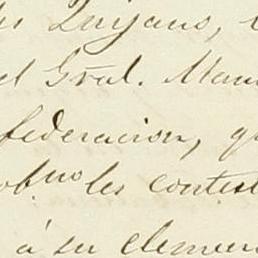 Quijano,
el Gral. Man
federacion, q
les contest
á su clemen